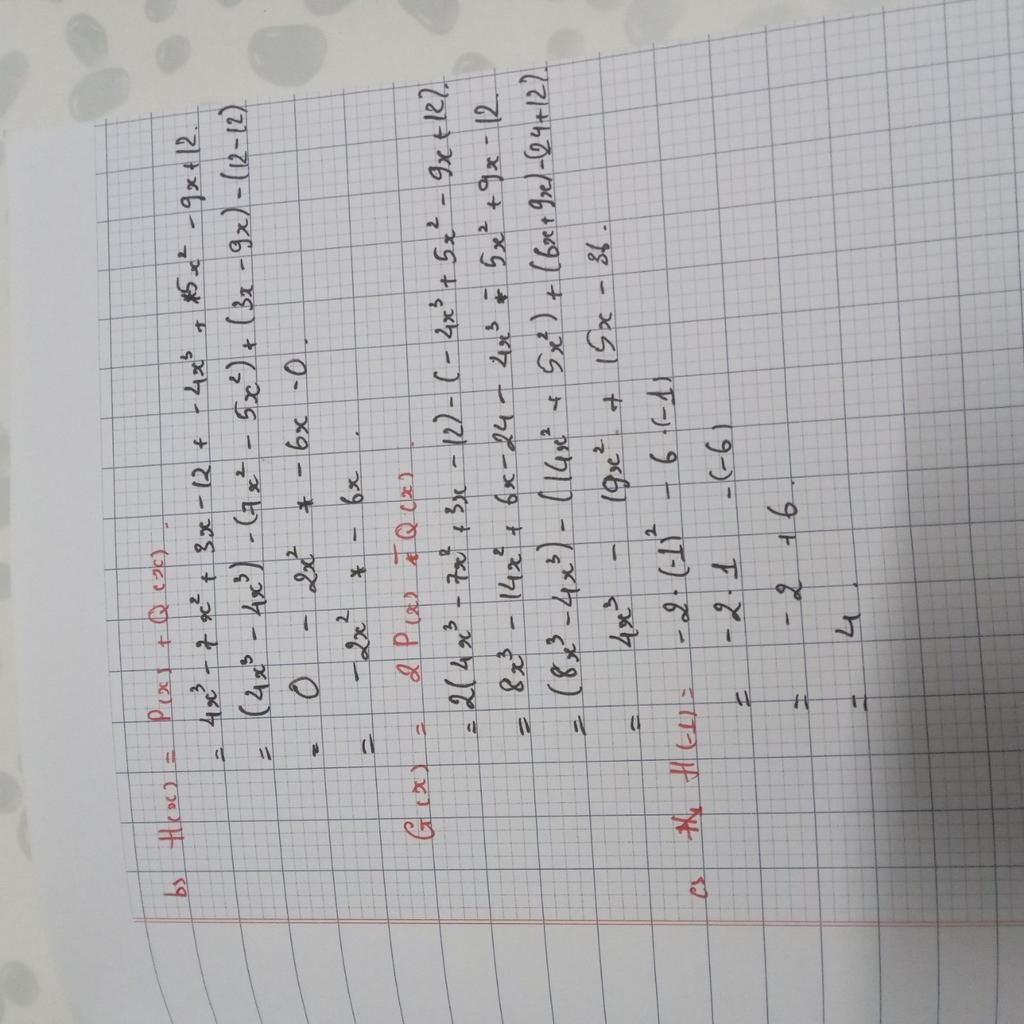 b) H(x) = P(x) + Q(x).
= 4x³ - 7x² + 3x - 12 + - 4x³ + 5x² - 9x + 12.
= (4x³ - 4x³) - (7x² - 5x²) + (3x - 9x) - (12 - 12)
= 0 - 2x² + - 6x - 0.
= -2x² + - 6x.
G(x) = 2 P(x) - Q(x).
= 2(4x³ - 7x² + 3x - 12) - (- 4x³ + 5x² - 9x + 12).
= 8x³ - 14x² + 6x - 24 - 4x³ - 5x² + 9x - 12
= (8x³ - 4x³) - (14x² + 5x²) + (6x + 9x) - (24 + 12).
= 4x³ - 19x² + 15x - 36.
c) H(-1) = -2·(-1)² - 6·(-1)
= -2·1 - (-6)
= -2 + 6.
= 4.